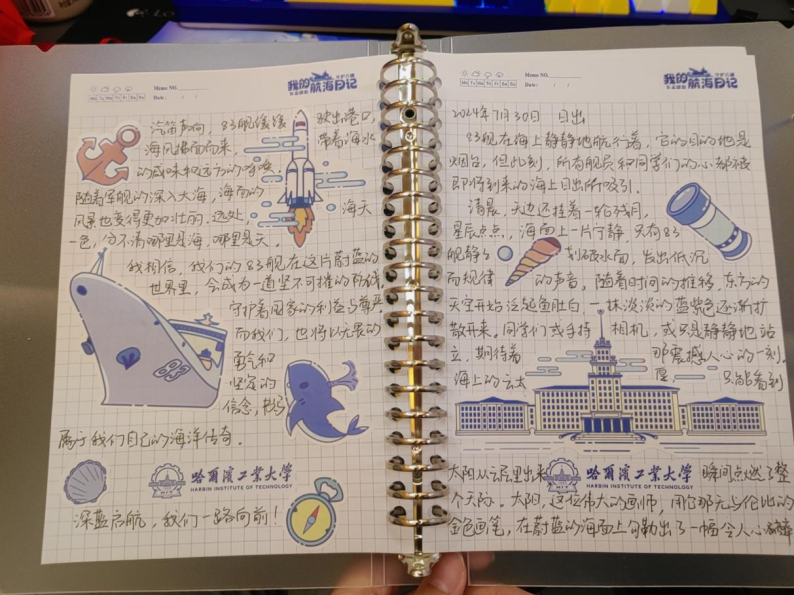 Memo NO.
Mo Tu We Th Fr Sa Su
Date: / /
我的航海日记
汽笛声响，83舰缓缓驶出港口，
海风扑面而来，带着海水
的咸味和远方的呼唤。
随着军舰的深入大海，海面的
风景也变得更加壮丽。远处，海天
一色，分不清哪里是海，哪里是天。
我相信，我们的83舰在这片蔚蓝的
世界里，会成为一道坚不可摧的防线，
守护着国家的利益与尊严。
而我们，也将以无畏的
勇气和
坚定的
信念，书写
属于我们自己的海洋传奇。
83
哈尔滨工业大学
HARBIN INSTITUTE OF TECHNOLOGY
深蓝启航，我们一路向前！
Memo NO.
Mo Tu We Th Fr Sa Su
Date: / /
我的航海日记
2024年7月30日 日出
83舰在海上静静地航行着，它的目的地是
烟台，但此刻，所有舰员和同学们的心都被
即将到来的海上日出所吸引。
清晨，天边还挂着一轮残月，
星辰点点，海面上一片宁静，只有83
舰静 划破水面，发出低沉
而规律的声音，随着时间的推移，东方的
天空开始泛起鱼肚白，一抹淡淡的蓝紫色逐渐扩
散开来。同学们或手持相机，或只是静静地站
立，期待着那震撼人心的一刻。
海上的云太 只能看到
太阳从云层里出来 瞬间点燃了整
哈尔滨工业大学
HARBIN INSTITUTE OF TECHNOLOGY
个天际。太阳，这位伟大的画师，用它那无与伦比的
金色画笔，在蔚蓝的海面上勾勒出了一幅令人心